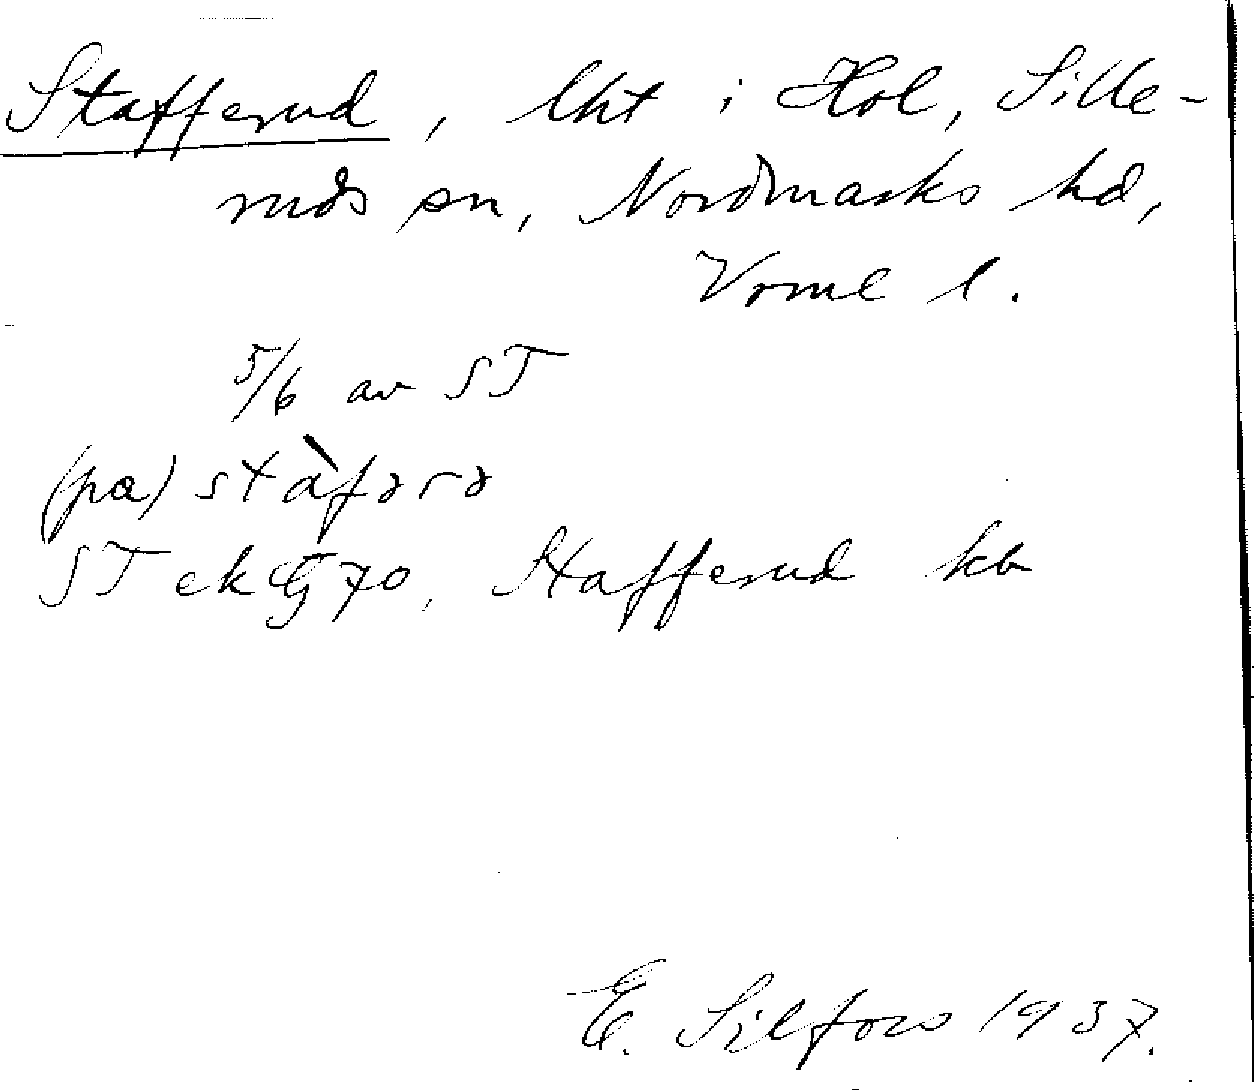 Stafferud, lht i Hol, Sille-
ruds sn, Nordmarks hd,
Vrml l.
5/6 av ST
(pa) stàfərə
ST ek 70, Stafferud kb
E. Silfors 1937.